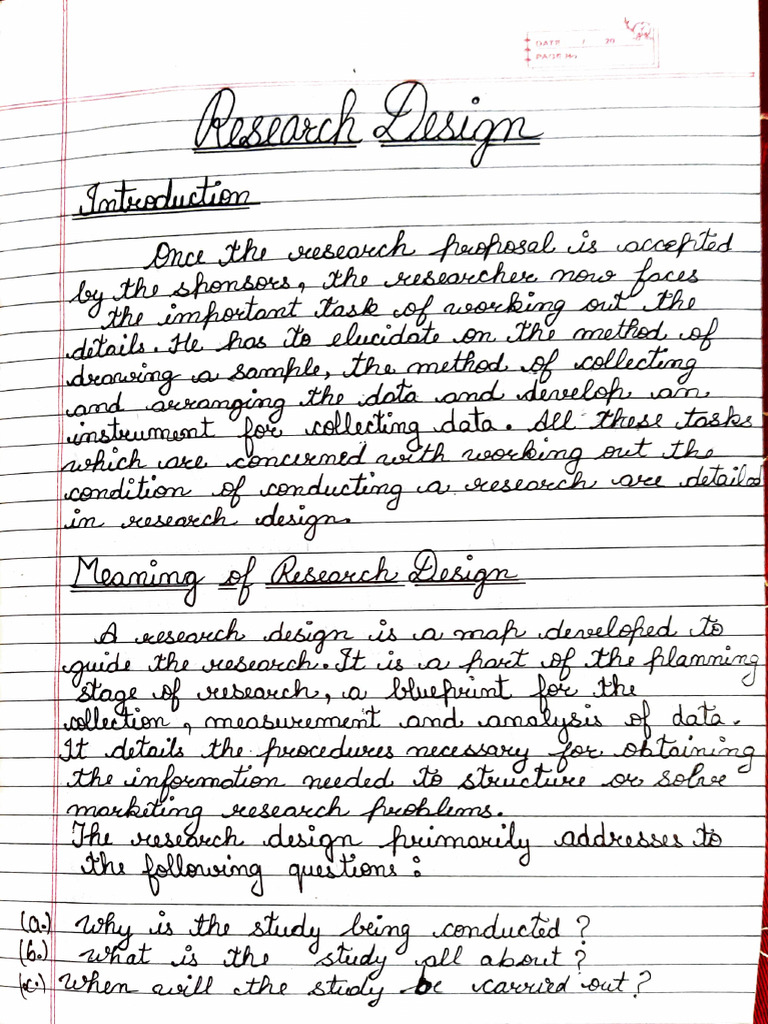 DATE / 20
PAGE No.
Research Design
Introduction
Once the research proposal is accepted
by the sponsors, the researcher now faces
the important task of working out the
details. He has to elucidate on the method of
drawing a sample, the method of collecting
and arranging the data and develop an
instrument for collecting data. All these tasks
which are concerned with working out the
condition of conducting a research are detailed
in research design.
Meaning of Research Design
A research design is a map developed to
guide the research. It is a part of the planning
stage of research, a blueprint for the
collection, measurement and analysis of data.
It details the procedures necessary for obtaining
the information needed to structure or solve
marketing research problems.
The research design primarily addresses to
the following questions:
(a.) Why is the study being conducted?
(b.) What is the study all about?
(c.) When will the study be carried out?